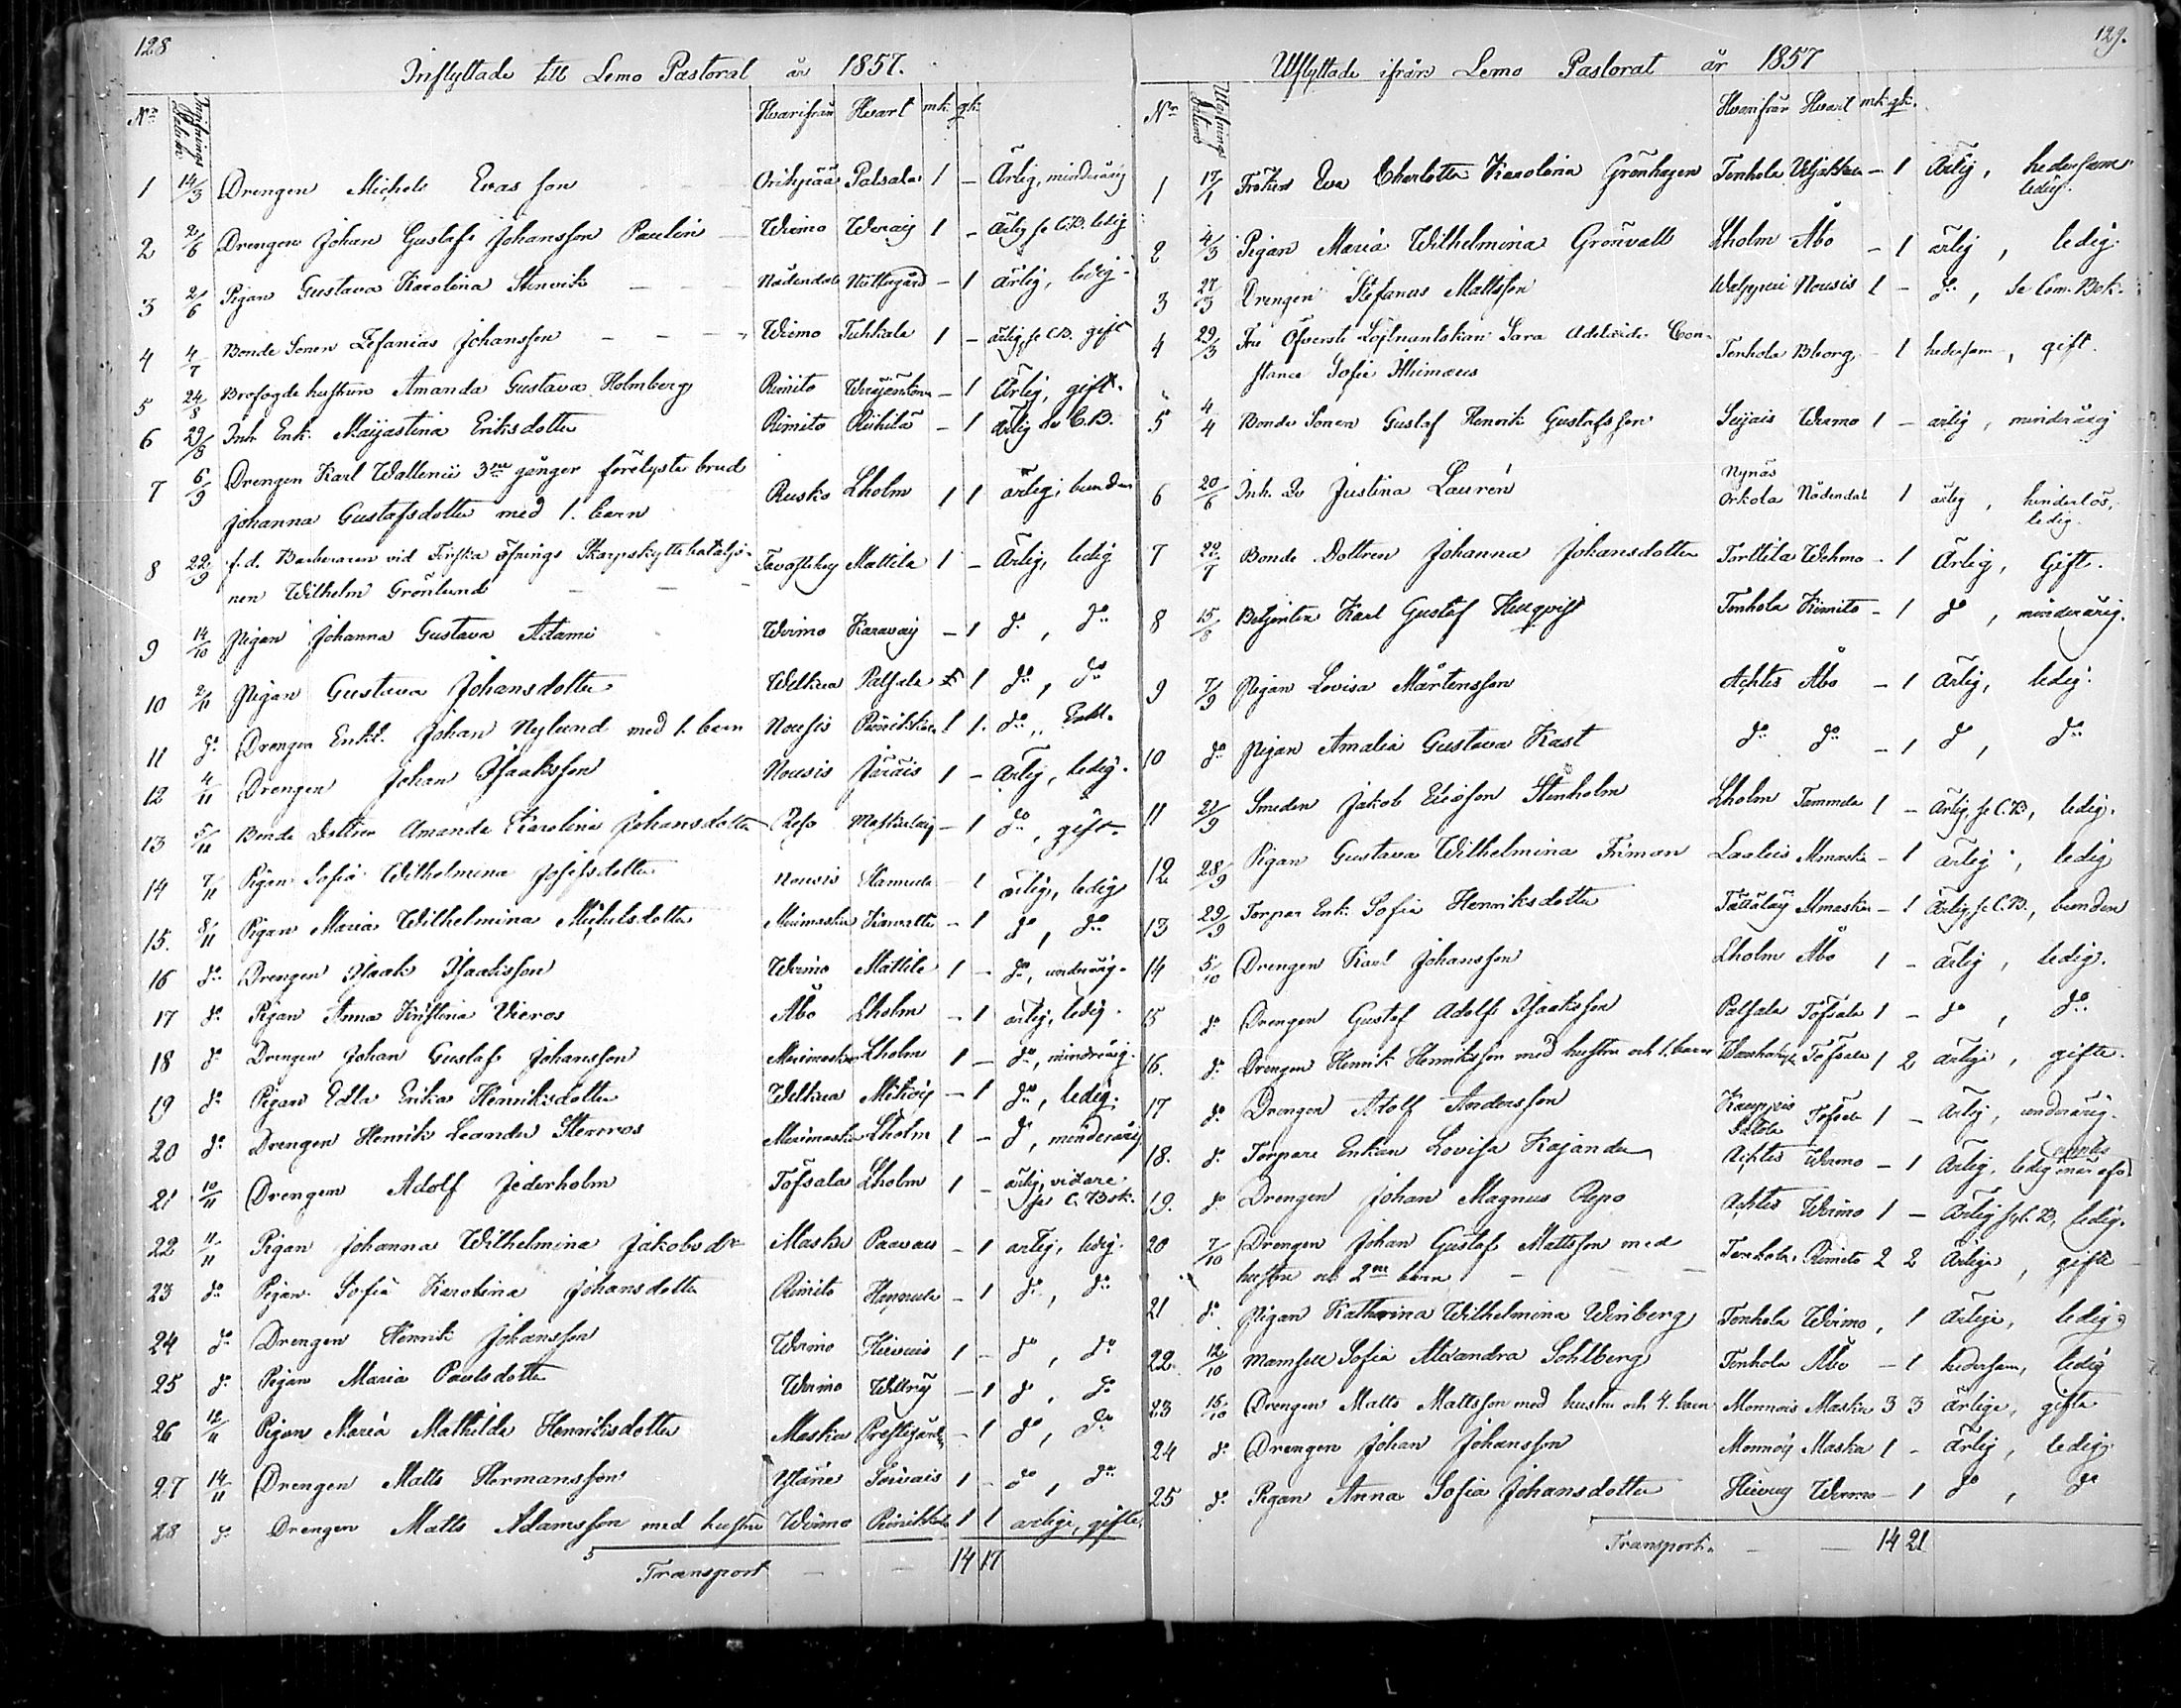 128
Inflyttade till Lemo Pastorat år 1857.
No Hvarifrån Hvart mk. qk.
1 14/3 Drengen Michels Evasson Orihpää Palsala 1 – Ärlig, minderårig
2 2/6 Drengen Johan Gustaf Johansson Paulin Wirmo 1 – ärlig se C.B. ledig
3 2/6 Pigan Gustava Karolina Stenvik Nådendal – 1 ärlig, ledig
4 4/7 Bonde Sonen Zefanias Johansson Wirmo Tuhkala 1 – ärlig, se C.B. gift
5 24/8 Brofogde hustrun Amanda Gustava Holmberg Rimito – 1 Ärlig, gift.
6 29/8 Inh. Enk. Maijastina Eriksdotter Rimito Riihilä – 1 ärlig se C.B.
7 6/9 Drengen Karl Wallenii 3ne gånger förelyste brud
Johanna Gustafsdotter med 1. barn Rusko Lholm 1 1 ärlig, bunden
8 22/9 f.d. Barberaren vid Finska Skarpskyttebataljo-
nen Wilhelm Grönlund Tavastehus Mattila 1 – Ärlig, ledig
9 14/10 Pigan Johanna Gustava Adami Wirmo Karavaj – 1 do, do
10 2/11 Pigan Gustava Johansdotter Welkua Palsala 1 do, do
11 do Drengen Enkl. Johan Nylund med 1. barn Nousis 1 1. do, Enkl.
12 4/11 Drengen Johan Isaaksson Nousis Järäis 1 – Ärlig, ledig.
13 5/11 Bonde Dottren Amanda Karolina Johansdotter Reso – 1 do, gift.
14 7/11 Pigan Sofia Wilhelmina Josefsdotter Nousis Hannula – 1 ärlig, ledig
15. 8/11 Pigan Maria Wilhelmina Michelsdotter Merimasku – 1 do, do
16 do Drengen Isaak Isaaksson Wirmo Mattila 1 – do, minderårig.
17 do Pigan Anna Kristina Vieros Åbo Lholm – 1 ärlig, ledig.
18 do Drengen Johan Gustaf Johansson Merimasku Lholm 1 – do, mindrårig.
19 do Pigan Edla Erika Henriksdotter Welkua – 1 do, ledig.
20 do Drengen Henrik Leander Sterroos Merimasku Lholm 1 – do, minderårig
21 10/11 Drengen Adolf Jederholm Töfsala Lholm 1 – ärlig, vidare
se C. Bok.
22 11/11 Pigan Johanna Wilhelmina Jakobsdr Masku Paavais – 1 ärlig, ledig.
23 do Pigan Sofia Karolina Johansdotter Rimito Hannula – 1 do, do
24 do Drengen Henrik Johansson Wirmo Hievais 1 – do, do
25 do Pigan Maria Paulsdotter Wirmo – 1 do, do
26 12/11 Pigan Maria Mathilda Henriksdotter Masku Prestgården – 1 do, do
27 14/11 Drengen Matts Hermansson Yläne 1 – do, do
28 do Drengen Matts Adamsson med hustru Wirmo 1 1 ärlige, gifte.
Transport – – 14 17
129.
Utflyttade ifrån Lemo Pastorat år 1857
No Hvarifrån Hvart mk. qk.
1 17/1 Fröken Eva Charlotta Karolina Grönhagen Tenhola – 1 Ärlig, hedersam
ledig.
2 4/3 Pigan Maria Wilhelmina Grönvall Lholm Åbo – 1 ärlig, ledig.
3 27/3 Drengen Stefanus Mattsson Nousis 1 – do, se Com. Bok.
4 29/3 Fru Öfverste Löjtnantskan Sara Adelaide Con-
stance Sofia Tenhola Bborg – 1 hedersam, gift.
5 4/4 Bonde Sonen Gustaf Henrik Gustafsson Seijais Wirmo 1 – ärlig, minderårig
6 20/6 Inh. Justina Laurén Nynäs
Orkola Nådendal 1 ärlig, hinderlös,
ledig.
7 22/7 Bonde Dottren Johanna Johansdotter Tarttila Wehmo – 1 Ärlig, Gift.
8 15/8 Betjenten Karl Gustaf Tenhola Kimito – 1 do, minderårig.
9 7/9 Pigan Lovisa Mårtensson Achtis Åbo – 1 Ärlig, ledig.
10 do Pigan Amalia Gustava Kast do do – 1 do, do
11 21/9 Smeden Jakob Ericsson Stenholm Lholm Tammela 1 – Ärlig, se C.B., ledig.
12 28/9 Pigan Gustava Wilhelmina Friman Laaleis Mmasku – 1 ärlig, ledig
13 29/9 Torpar Enk. Sofia Henriksdotter Mmasku – 1 Ärlig, se C.B., bunden
14 5/10 Drengen Karl Johansson Lholm Åbo 1 – ärlig, ledig.
15 do Drengen Gustaf Adolf Isaaksson Palsala Töfsala 1 – do, do
16. do Drengen Henrik Henriksson med hustru och 1. barn Töfsala 1 2 ärlige, gifte.
17 do Drengen Adolf Andersson Töfsala 1 – Ärlig, minderårig.
18. do Torpare Enkan Lovisa Kajander Achtis Wirmo – 1 Ärlig, ledig
19. do Drengen Johan Magnus Repo Achtis Wirmo 1 – Ärlig, se C. B. ledig.
20 7/10 Drengen Johan Gustaf Mattsson med
hustru och 2ne barn Tenhola Rimito 2 2 Ärlige, gifte
21 do Pigan Katharina Wilhelmina Winberg Tenhola Wirmo, 1 Ärlige, ledig
22. 12/10 Mamsell Sofia Alexandra Sohlberg Tenhola Åbo – 1 hedersam, ledig
23 15/10 Drengen Matts Mattsson med hustru och 4. barn Monnois Masku 3 3 ärlige, gifta
24 do Drengen Johan Johansson Monnoij Masku 1 – ärlig, ledig
25 do Pigan Anna Sofia Johansdotter Wirmo – 1 do, do
Transport. – – 14 21